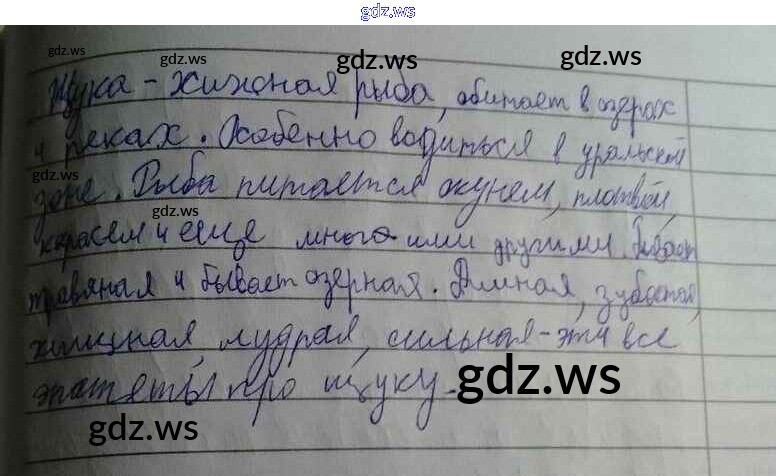 gdz.ws
gdz.ws gdz.ws
gdz.ws gdz.ws
Щука - хищная рыба, обитает в озерах
и реках. Особенно водиться в уральской
gdz.ws gdz.ws
зоне. Рыба питается окунем, плотвой,
gdz.ws
карасем и еще много или другими. Бывает
травяная и бывает озерная. Длинная, зубастая,
хищная, мудрая, сильная - эти все
эпатеты про щуку.
gdz.ws
gdz.ws